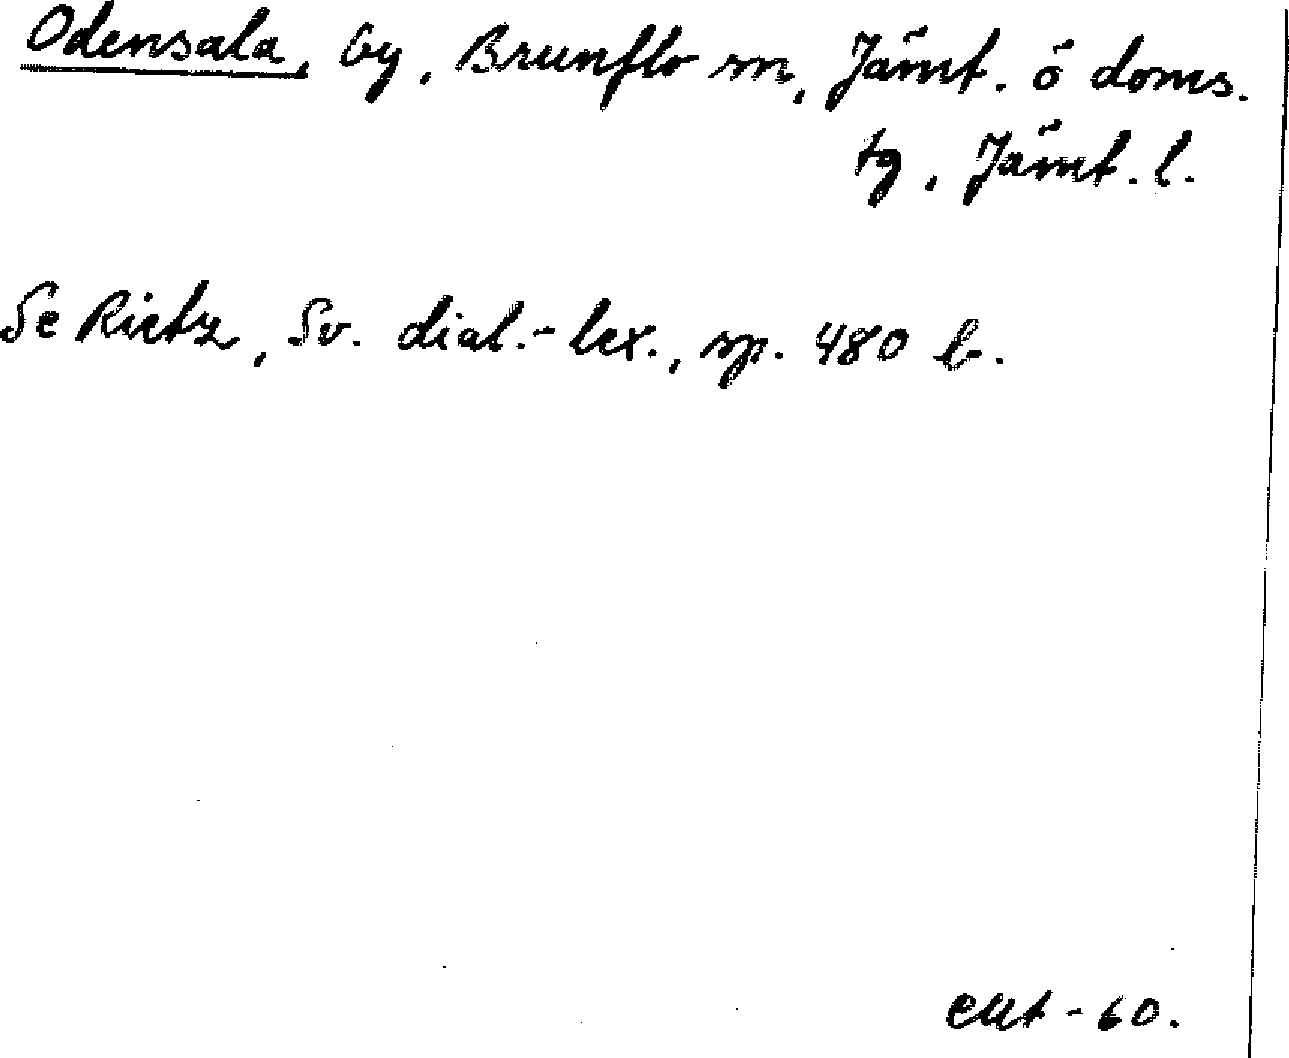 Odensala, by, Brunflo sn, Jämt. ö doms.
tg, Jämt. l.
Se Rietz, Sv. dial.-lex., sp. 480 b.
-60.